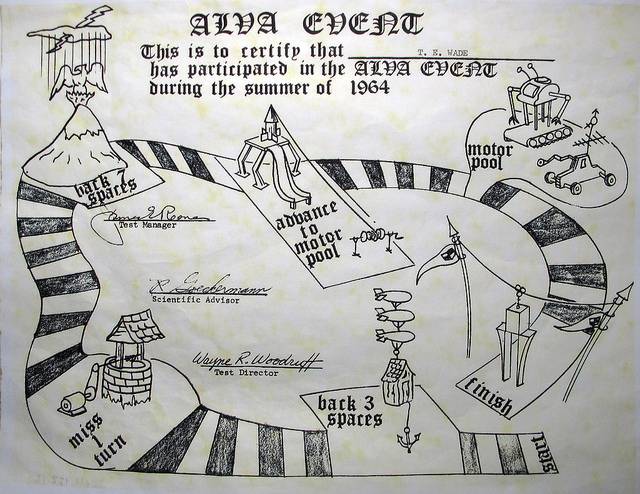 ALVA EVENT
This is to certify that T. E. WADE
has participated in the ALVA EVENT
during the summer of 1964
motor
pool
back 7
spaces
Test Manager
advance
to
motor
pool
R Goeckermann
Scientific Advisor
Wayne R. Woodruff
Test Director
back 3
spaces
finish
miss
1
turn
start